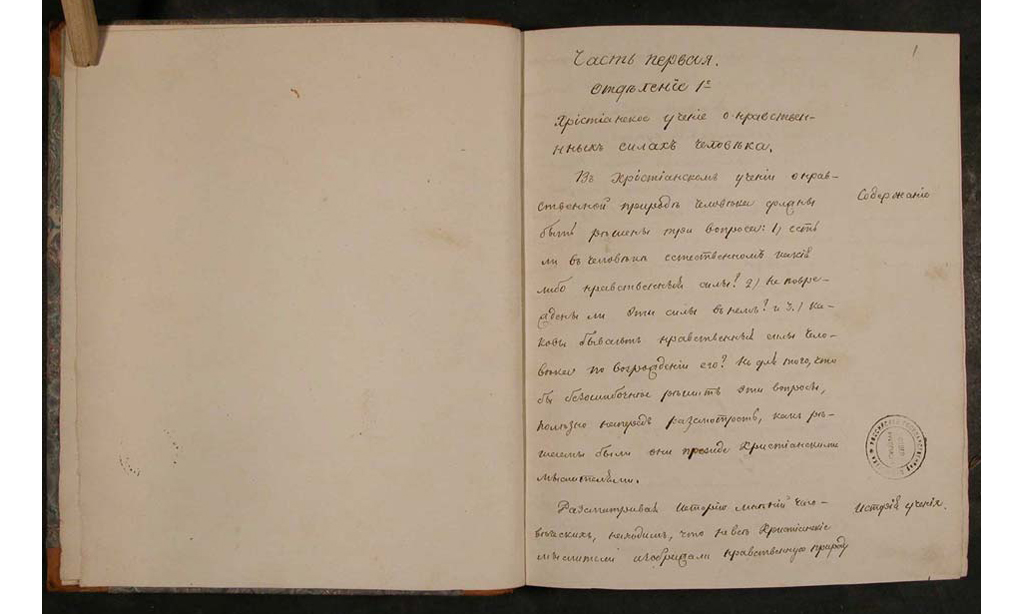 1
Часть первая.
Отдѣленіе 1е
Христіанское ученіе о нравствен-
нныхъ силахъ человѣка.
Въ Христіанскомъ ученіи о нрав-
ственной природѣ человѣка должны
быть рѣшены три вопроса: 1) есть
ли въ человѣкѣ естественномъ какія
либо нравственныя силы? 2) не повре-
ждены ли эти силы въ немъ? и 3.) ка-
ковы бываютъ нравственныя силы чело-
вѣка по возрожденіи его? Но для того, что
бы безошибочнѣе рѣшить эти вопросы,
полезно напередъ разсмотрѣть, какъ рѣ-
шаемы были они прежде Христіанскими
мыслителями.
Разсматривая Исторію мнѣній чело-
вѣческихъ, находимъ, что не всѣ Христіанскіе
мыслители изображали нравственную природу
Содержаніе
Исторія ученія.